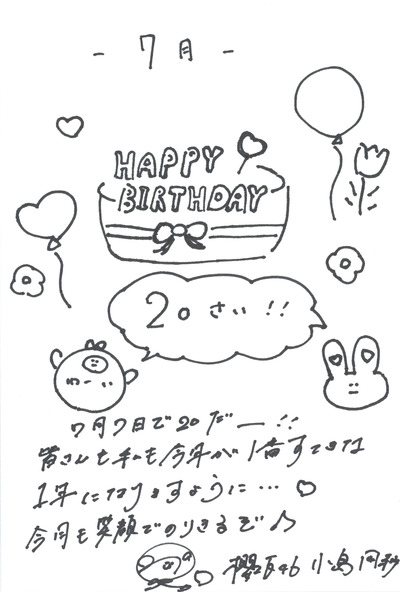 - 7月 -
HAPPY
BIRTHDAY
20さい!!
7月7日で20だー!!
皆さんも私も今年が1番すてきな
1年になりますように…♡
今月も笑顔でのりきるぞ♪
櫻坂46 小島凪紗